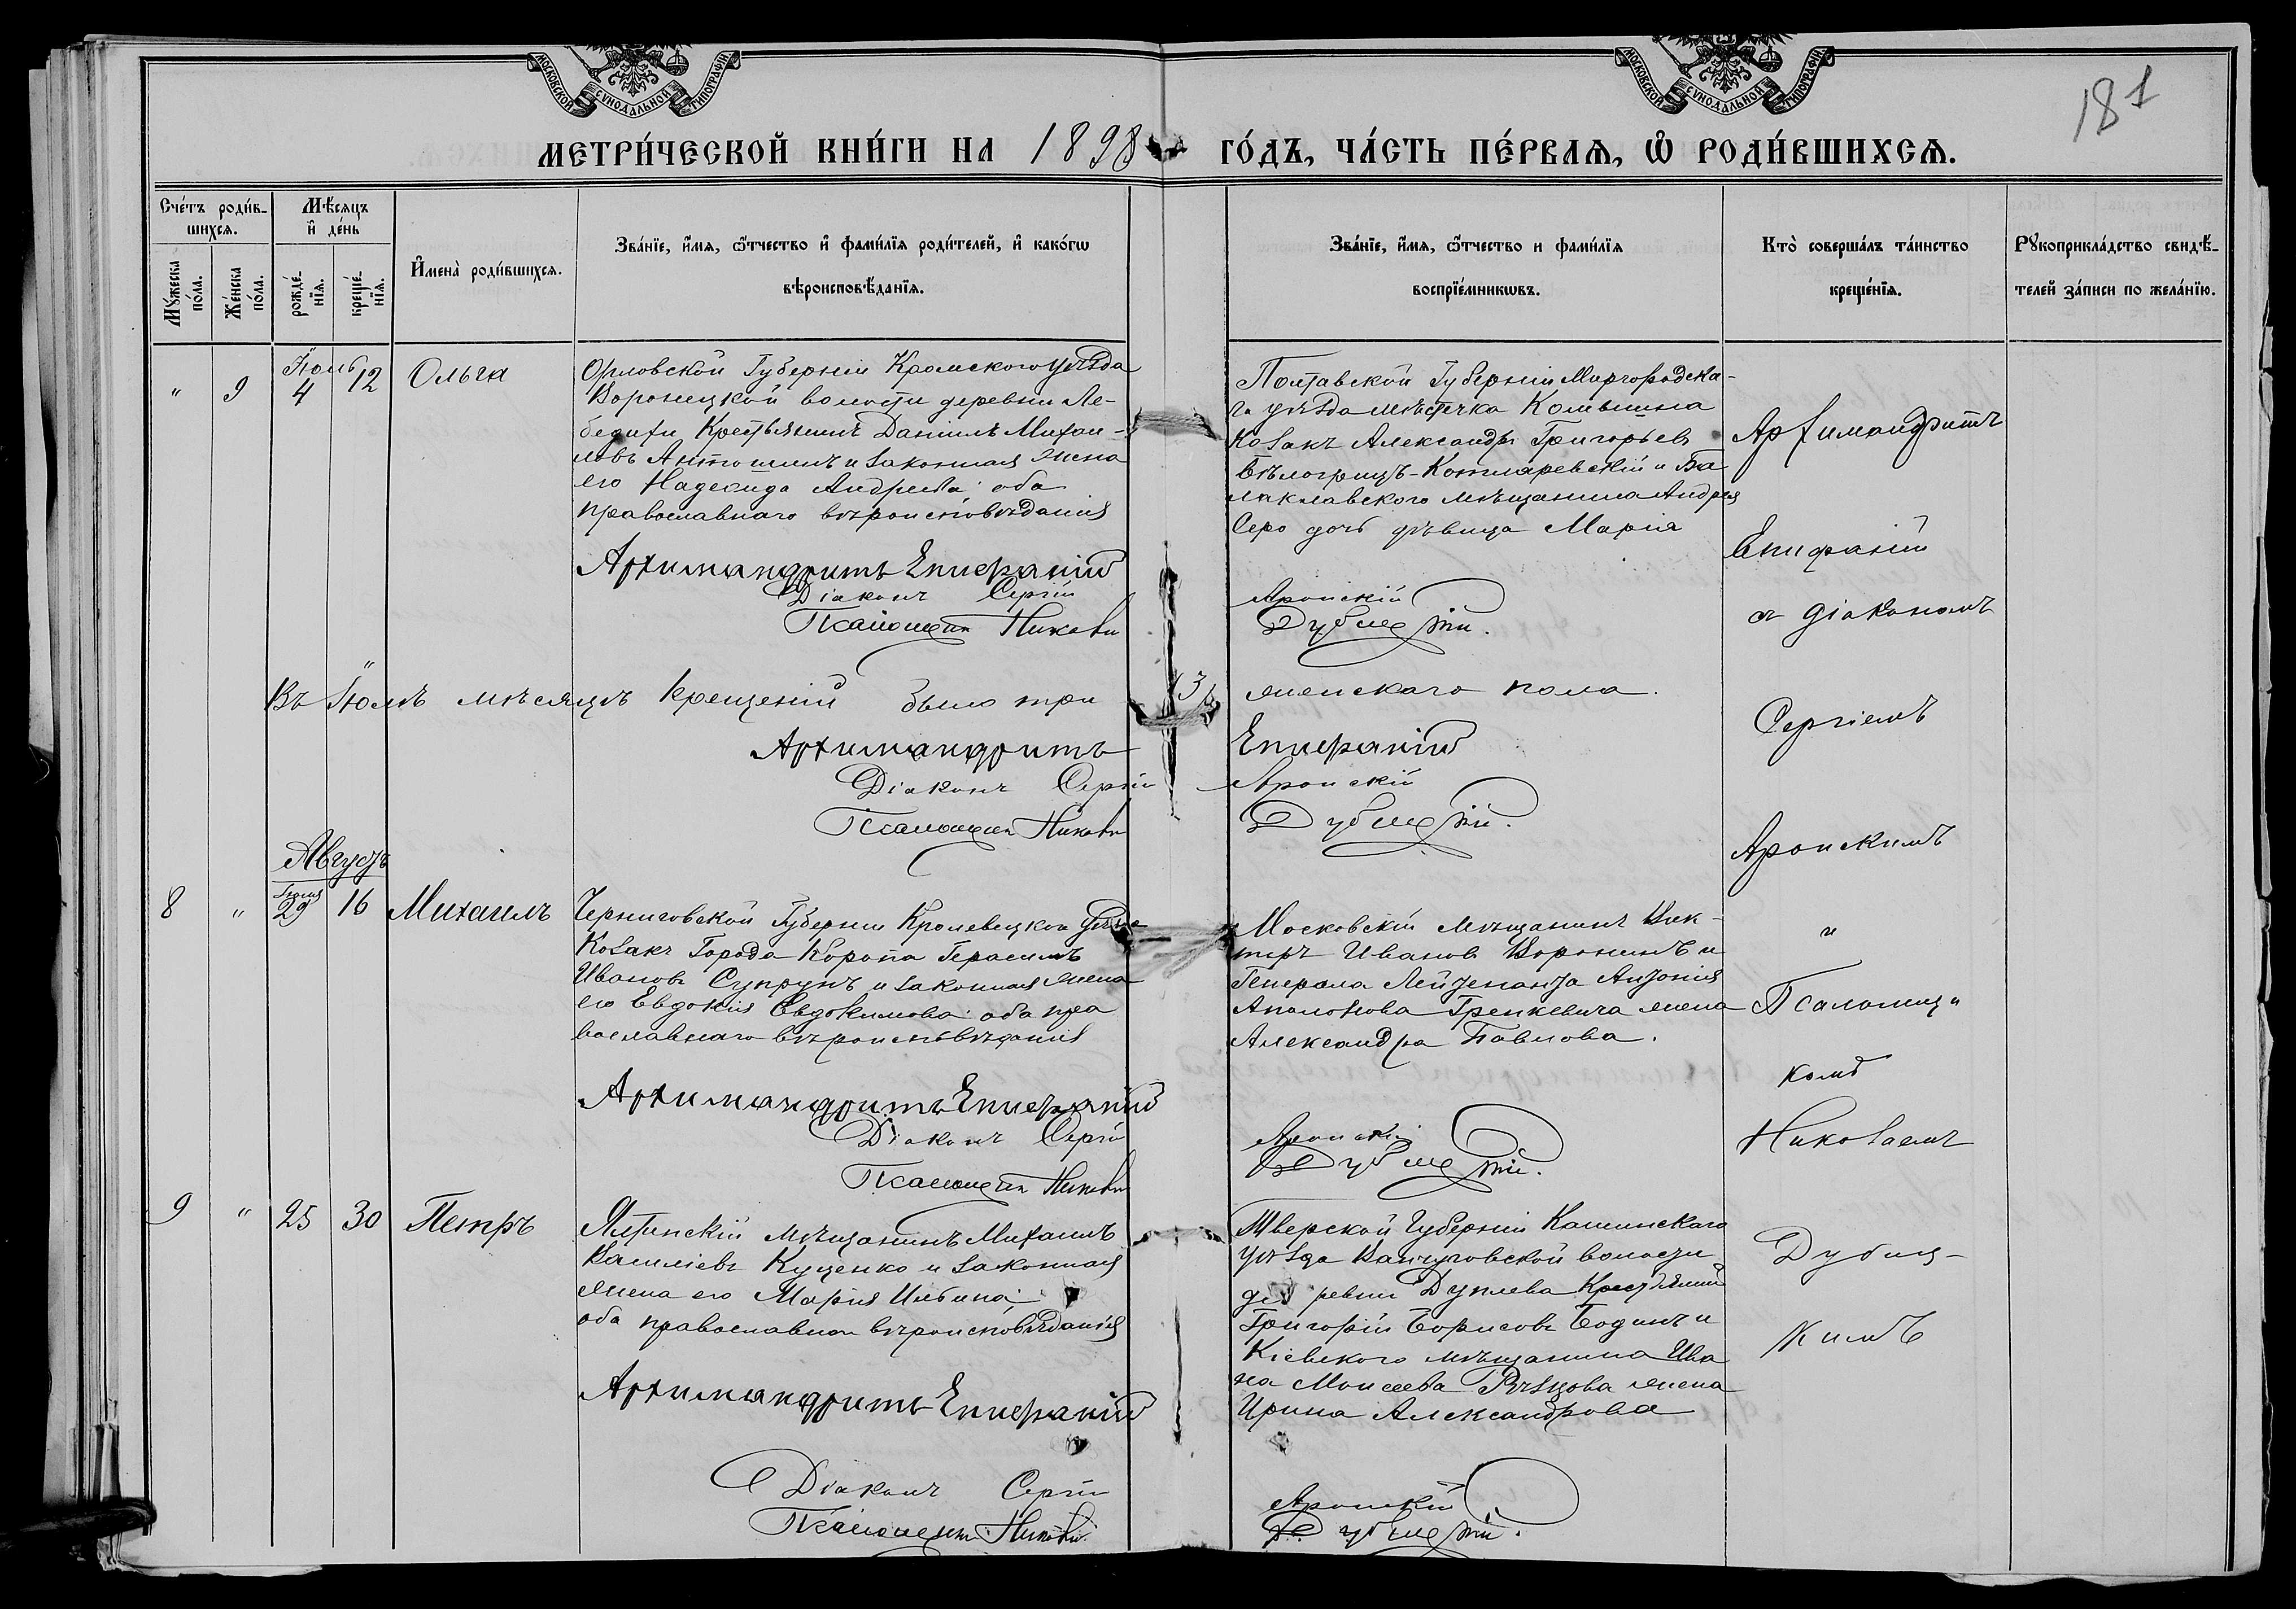 МОСКОВСКОЙ СѴНОДАЛЬНОЙ ТИПОГРАФІИ.
МОСКОВСКОЙ СѴНОДАЛЬНОЙ ТИПОГРАФІИ.
181
МЕТРИ́ЧЕСКОЙ КНИ́ГИ НА 1898
ГО́ДЪ, ЧА́СТЬ ПЕ́РВАЯ, Ѽ РОДИ́ВШИХСЯ.
Сче́тъ роди́в-
шихся.
Му́жеска по́ла.
Же́нска по́ла.
Мѣ́сяцъ
и҆ де́нь
рожде́-
нїя.
креще́-
нїя.
И҆мена̀ роди́вшихся.
Зва́нїе, и҆́мя, ѻ҆́тчество и҆ фами́лїя роди́телей, и҆ како́гѡ
вѣроисповѣ́данїя.
Зва́нїе, и҆́мя, ѻ҆́тчество и фами́лїя
воспрїе́мникѡвъ.
Кто̀ соверша́лъ та́инство
креще́нїя.
Рꙋкоприкла́дство свидѣ́-
телей за́писи по жела́нїю.
" 9 4 12 Ольга
Орловской Губерніи Кромского уѣзда
волости деревни Ле-
Крестьянинъ Даніилъ Михаи-
ловъ Антошинъ и законная жена
его Надежда Андреева оба
православнаго вѣроисповѣданія
Архимандритъ Епифаній
Діаконъ Сергій
Псаломщикъ
Полтавской Губерніи Миргородска-
го уѣзда мѣстечка
Козакъ Александръ Григорьевъ
Бѣлогрицъ-Котляревскій и Ба
лаклавского мѣщанина Андрея
Серо дочь дѣвица Марія
Аронскій
Дубицкій.
Архимандритъ
Епифаній
съ діакономъ
Сергіемъ
Аронскимъ
и
Псаломщи
комъ
Николаемъ
Дубиц-
кимъ
Въ Іюлѣ мѣсяцѣ крещеній было три
(3) женскаго пола.
Архимандритъ
Епифаній
Діаконъ Сергій
Аронскій
Псаломщикъ
Дубицкій.
Августъ
Іюля
8 " 29 16 Михаилъ
Черниговской Губерніи Кролевецкаго уѣзда
Козакъ Города Коропа Герасимъ
Ивановъ Супрунъ и законная жена
его Евдокія Евдокимова оба пра
вославнаго вѣроисповѣданія
Архимандритъ Епифаній
Діаконъ Сергій
Псаломщикъ
Московскій мѣщанинъ Вик-
торъ Ивановъ Воронинъ и
Генерала Лейтенанта Антонія
Аполонова Гренкевича жена
Александра Павлова.
Аронскій
Дубицкій.
9 " 25 30 Петръ
Ялтинскій мѣщанинъ Михаилъ
Василіевъ Куценко и законная
жена его Марія Ильина
оба православнаго вѣроисповѣданія
Архимандритъ Епифаній
Діаконъ Сергій
Псаломщикъ
Тверской Губерніи Кашинскаго
уѣзда волости
деревни Дуплева Крестьянинъ
Григорій Борисовъ Бодинъ и
Кіевского мѣщанина Ива
на Моисеева Рѣзцова жена
Ирина Александрова
Аронскій
Дубицкій.